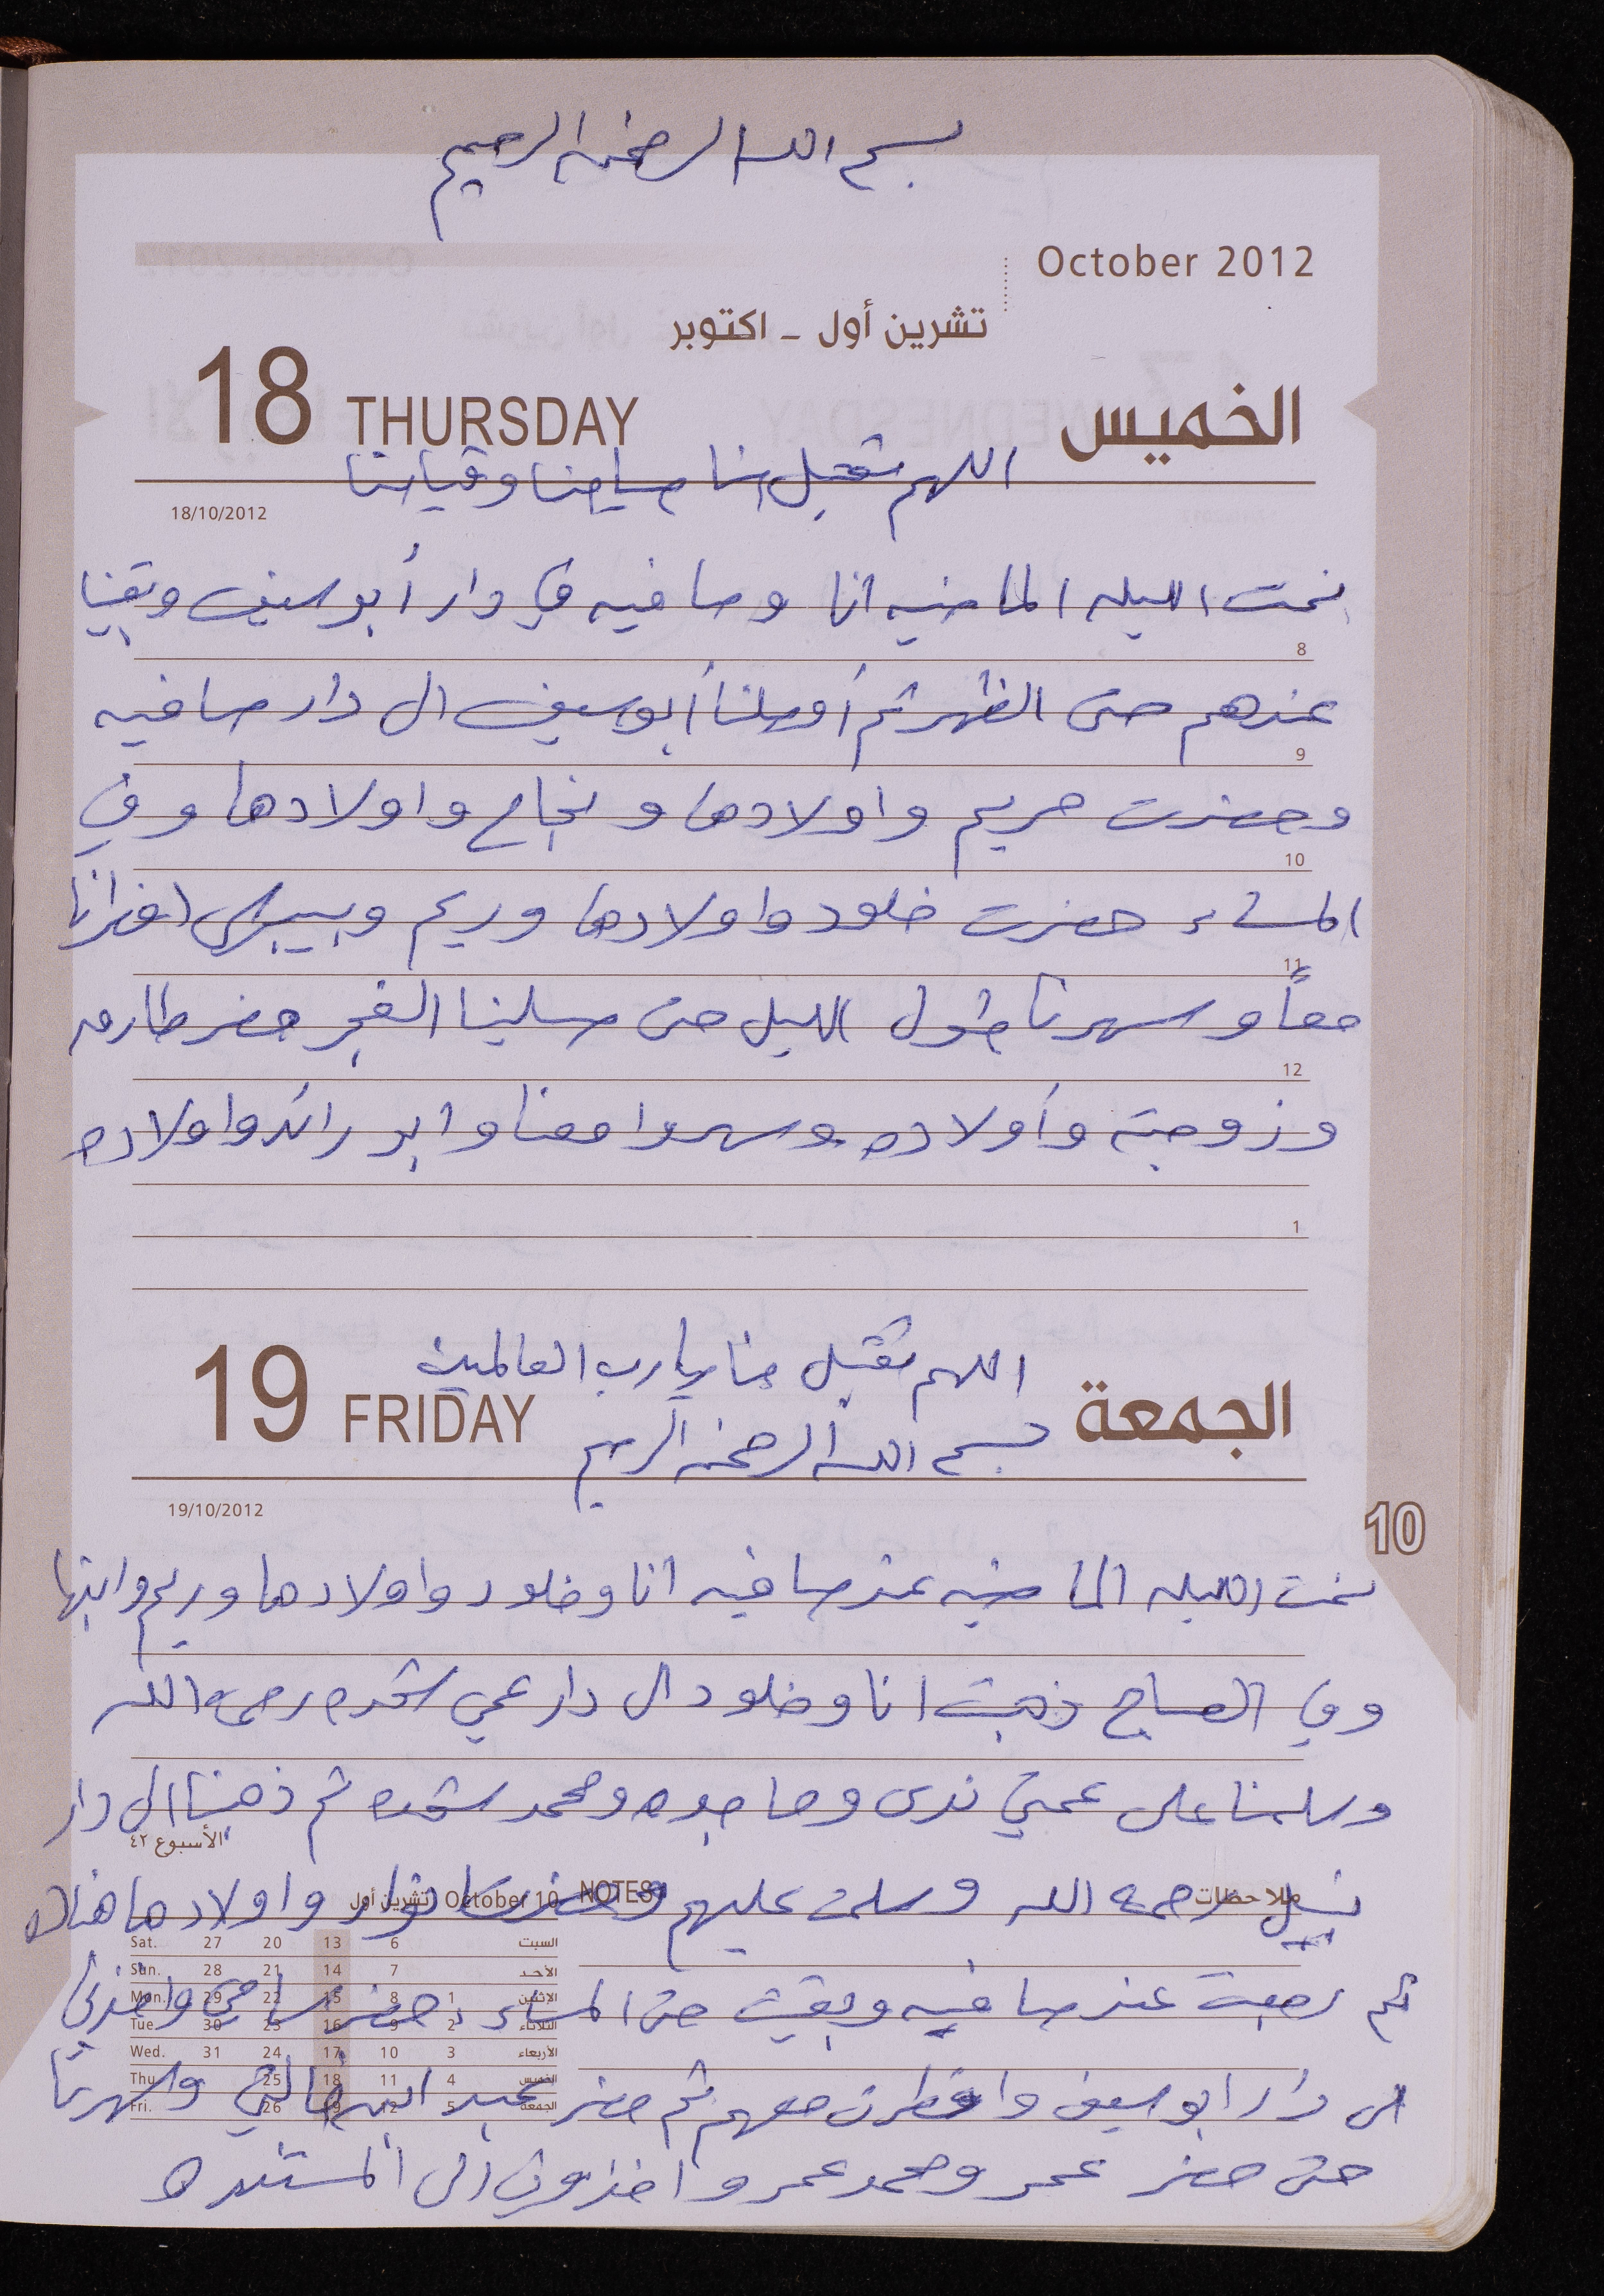 بسم الله الرحمن الرحيم
October 2012
تشرين أول - اكتوبر
18 THURSDAY الخميس
اللهم تقبل منا صيامنا وقيامنا
18/10/2012
نمت الليله الماضيه انا وصافيه في دار أبو سيف وبقينا
8
عندهم حتى الظهر ثم أوصلنا أبو سيف الى دار صافيه
9
وحضرت مريم واولادها ونجاح واولادها وفي
10
المساء حضرت خلود واولادها وريم وبيبرس افطرنا
11
معاً وسهرنا طول الليل حتى صلينا الفجر حضر طارق
12
وزوجته وأولاده وسهروا معنا وابو رائد واولاده
1
اللهم تقبل منا يارب العالمين
19 FRIDAY الجمعة
بسم الله الرحمن الرحيم
19/10/2012
10
نمت الليله الماضيه عند صافيه انا وخلود واولادها وريم وابنها
وفي الصباح ذهبت انا وخلود الى دار عمي شحده رحمه الله
وسلمنا على عمتي ندى وماجده ومحمد شحده ثم ذهبنا الى دار
الأسبوع ٤٢
نبيل رحمه الله وسلمت عليهم وحضرت نوار واولادها هناك
ملاحظات NOTES October 10 تشرين أول
Sat. 27 20 13 6 السبت
Sun. 28 21 14 7 الأحد
Mon. 29 22 15 8 1 الإثنين
Tue. 30 23 16 9 2 الثلاثاء
Wed. 31 24 17 10 3 الأربعاء
Thu. 25 18 11 4 الخميس
Fri. 26 19 12 5 الجمعة
ثم رجعت عند صافيه وبقيت حتى المساء، حضر سامي واخذني
الى دار ابو سيف وافطرت معهم ثم حضر عبد ابن خالتي وسهرنا
حتى حضر عمر ومحمد عمر واخذوني الى المستنده